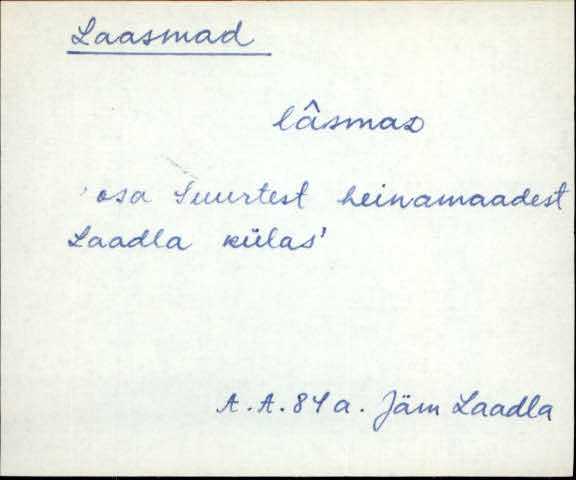 Laasmad
lâsmaᴅ
'osa suurtest heinamaadest
Laadla külas'
A.A. 84 a. Jäm Laadla